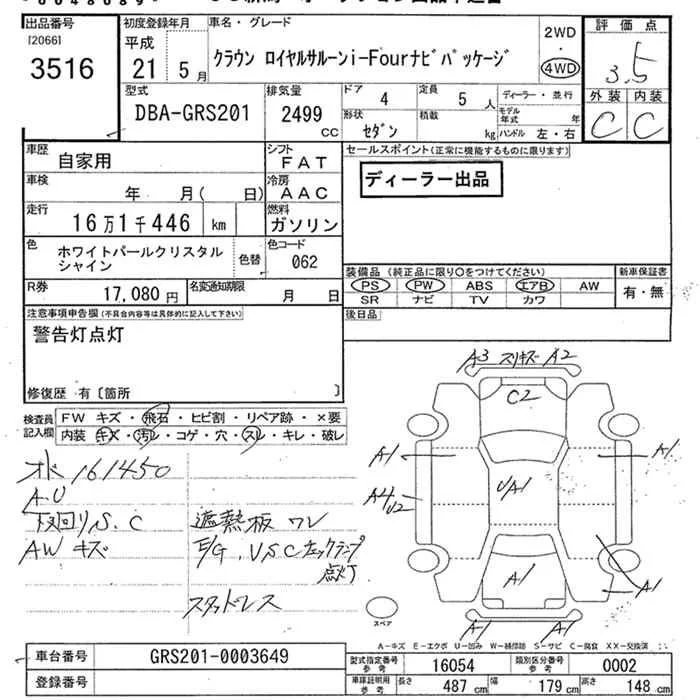 出品番号 [2066] 3516
初度登録年月 平成 21年 5月
車名・グレード
クラウン ロイヤルサルーンi-Fourナビパッケージ
2WD ・ 4WD
評価点 3.5
外装 C 内装 C
型式 DBA-GRS201
排気量 2499 CC
ドア 4
定員 5 人
ディーラー・並行
形状 セダン
積載 kg
モデル年式 年
ハンドル 左・右
車歴 自家用
シフト FAT
セールスポイント(正常に機能するものに限ります)
ディーラー出品
車検 年 月( 日)
冷房 AAC
走行 16万1千446 km
燃料 ガソリン
色 ホワイトパールクリスタルシャイン
色替
色コード 062
装備品 (純正品に限り○をつけてください)
新車保証書
PS PW ABS エアB AW
有・無
SR ナビ TV カワ
R券 17,080円
名変通知期限 月 日
後日品
注意事項申告欄(不具合内容等は具体的に記入して下さい)
警告灯点灯
修復歴 有〔箇所 〕
検査員記入欄
FW キズ・飛石・ヒビ割・リペア跡・×要
内装 キズ・汚レ・コゲ・穴・スレ・キレ・破レ
オド 161450
A.U
下回りS.C 遮熱板 ワレ
AWキズ E/G、VSCチェックランプ
点灯
スタッドレス
A3 スリキズ A2
C2
A1
A1
A4
U2
UA1
A1
A1
A1
A1
スペア
A-キズ E-エクボ U-凹み W-補修跡 S-サビ C-腐食 XX-交換済
車台番号 GRS201-0003649
登録番号
型式指定番号 参考 16054
類別区分番号 参考 0002
車庫証明用 参考 長さ 487 cm 幅 179 cm 高さ 148 cm